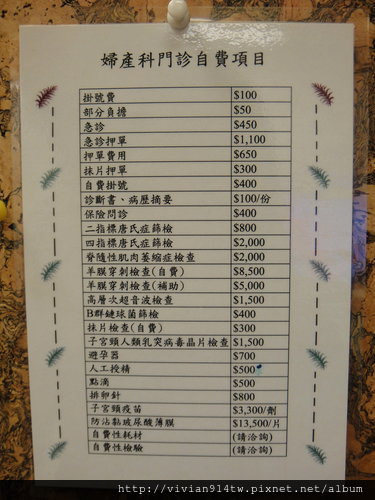 婦產科門診自費項目
掛號費 $100
部分負擔 $50
急診 $450
急診押單 $1,100
押單費用 $650
抹片押單 $300
自費掛號 $400
診斷書、病歷摘要 $100/份
保險問診 $400
二指標唐氏症篩檢 $800
四指標唐氏症篩檢 $2,000
脊隨性肌肉萎縮症檢查 $2,000
羊膜穿刺檢查(自費) $8,500
羊膜穿刺檢查(補助) $5,000
高層次超音波檢查 $1,500
B群鏈球菌篩檢 $400
抹片檢查(自費) $300
子宮頸人類乳突病毒晶片檢查 $1,500
避孕器 $700
人工授精 $500
點滴 $500
排卵針 $800
子宮頸疫苗 $3,300/劑
防沾黏玻尿酸薄膜 $13,500/片
自費性耗材 (請洽詢)
自費性檢驗 (請洽詢)
http://vivian914tw.pixnet.net/album